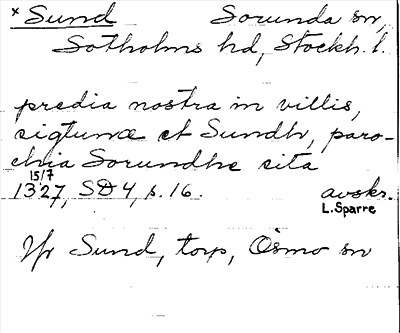 × Sund Sorunda sn,
Sotholms hd, Stockh. l.
predia nostra in villis,
sigtunæ et Sundh, paro-
chia Sorundhe sita
15/7
1327, SD 4, s. 16. avskr.
L. Sparre
Jfr Sund, torp, Ösmo sn